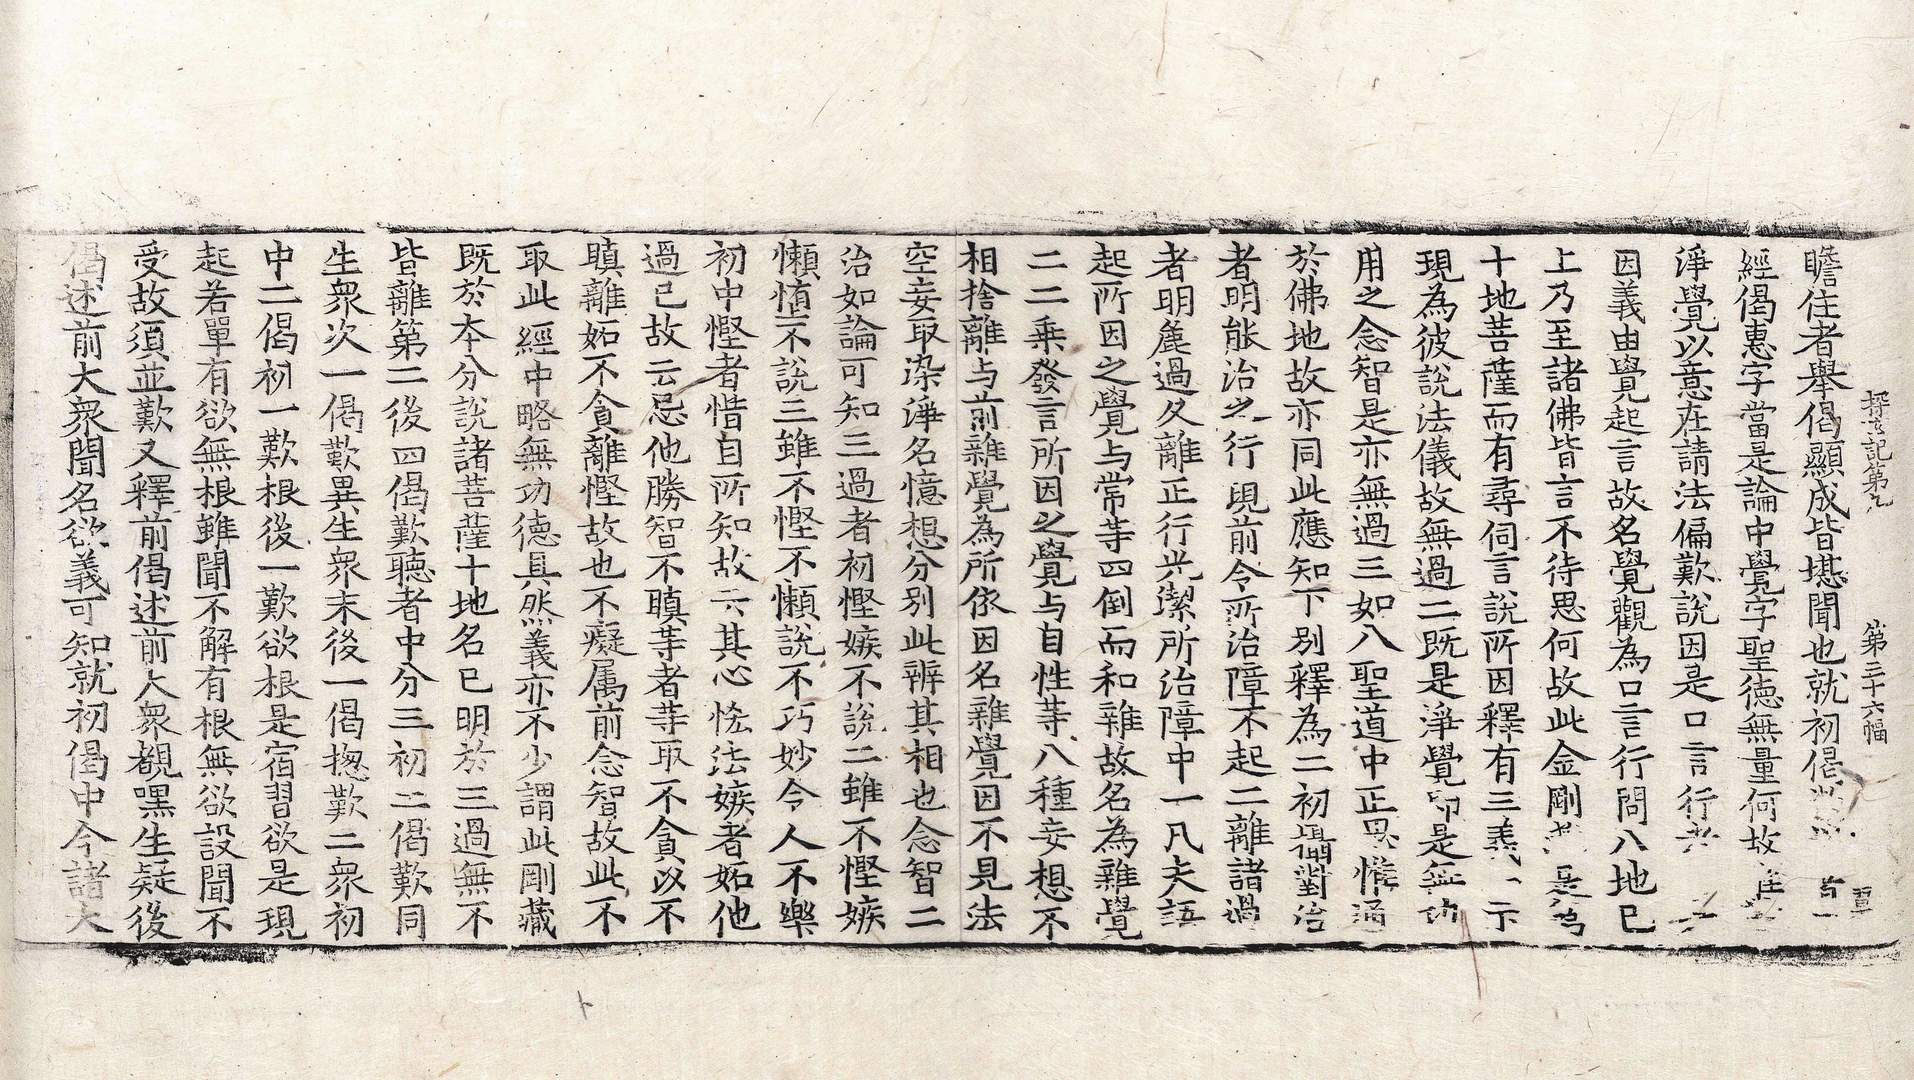 探玄記第九 第三十六幅 亘
瞻住者舉偈顯成皆堪聞也就初偈
經偈惠字當是論中覺字聖德無量何故
淨覺以意在請法偏歎說因是口言行
因義由覺起言故名覺觀為口言行問八地已
上乃至諸佛皆言不待思何故此金剛
十地菩薩而有尋伺言說所因釋有三義一示
現為彼說法儀故無過二既是淨覺即是無功
用之念智是亦無過三如八聖道中正思惟通
於佛地故亦同此應知下別釋為二初攝對治
者明能治之行現前令所治障不起二離諸過
者明麁過久離正行光潔所治障中一凡夫語
起所因之覺与常等四倒而和雜故名為雜覺
二二乘發言所因之覺与自性等八種妄想不
相捨離与前雜覺為所依因名雜覺因不見法
空妄取染淨名憶想分別此辨其相也念智二
治如論可知三過者初慳嫉不說二雖不慳嫉
懶惰不說三雖不慳不懶說不巧妙令人不樂
初中慳者惜自所知故云其心悋法嫉者妬他
過己故云忌他勝智不瞋等者等取不貪以不
瞋離妬不貪離慳故也不癡属前念智故此不
取此經中略無功德具然義亦不少謂此剛藏
既於本分說諸菩薩十地名已明於三過無不
皆離第二後四偈歎聽者中分三初二偈歎同
生衆次一偈歎異生衆末後一偈揔歎二衆初
中二偈初一歎根後一歎欲根是宿習欲是現
起若單有欲無根雖聞不解有根無欲設聞不
受故須並歎又釋前偈述前大衆覩嘿生疑後
偈述前大衆聞名欲義可知就初偈中今諸大